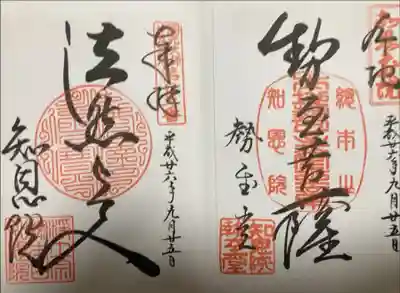 本地
平成廿六年九月廿五日
勢至菩薩
總本山
知恩院
勢至堂
知恩院
勢至堂
奉拝
平成廿六年九月廿五日
法然上人
知恩院